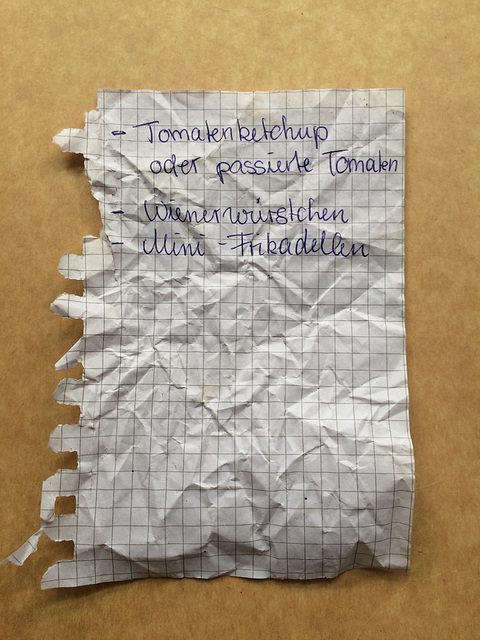 - Tomatenketchup
oder passierte Tomaten
- Wienerwürstchen
- Mini - Frikadellen